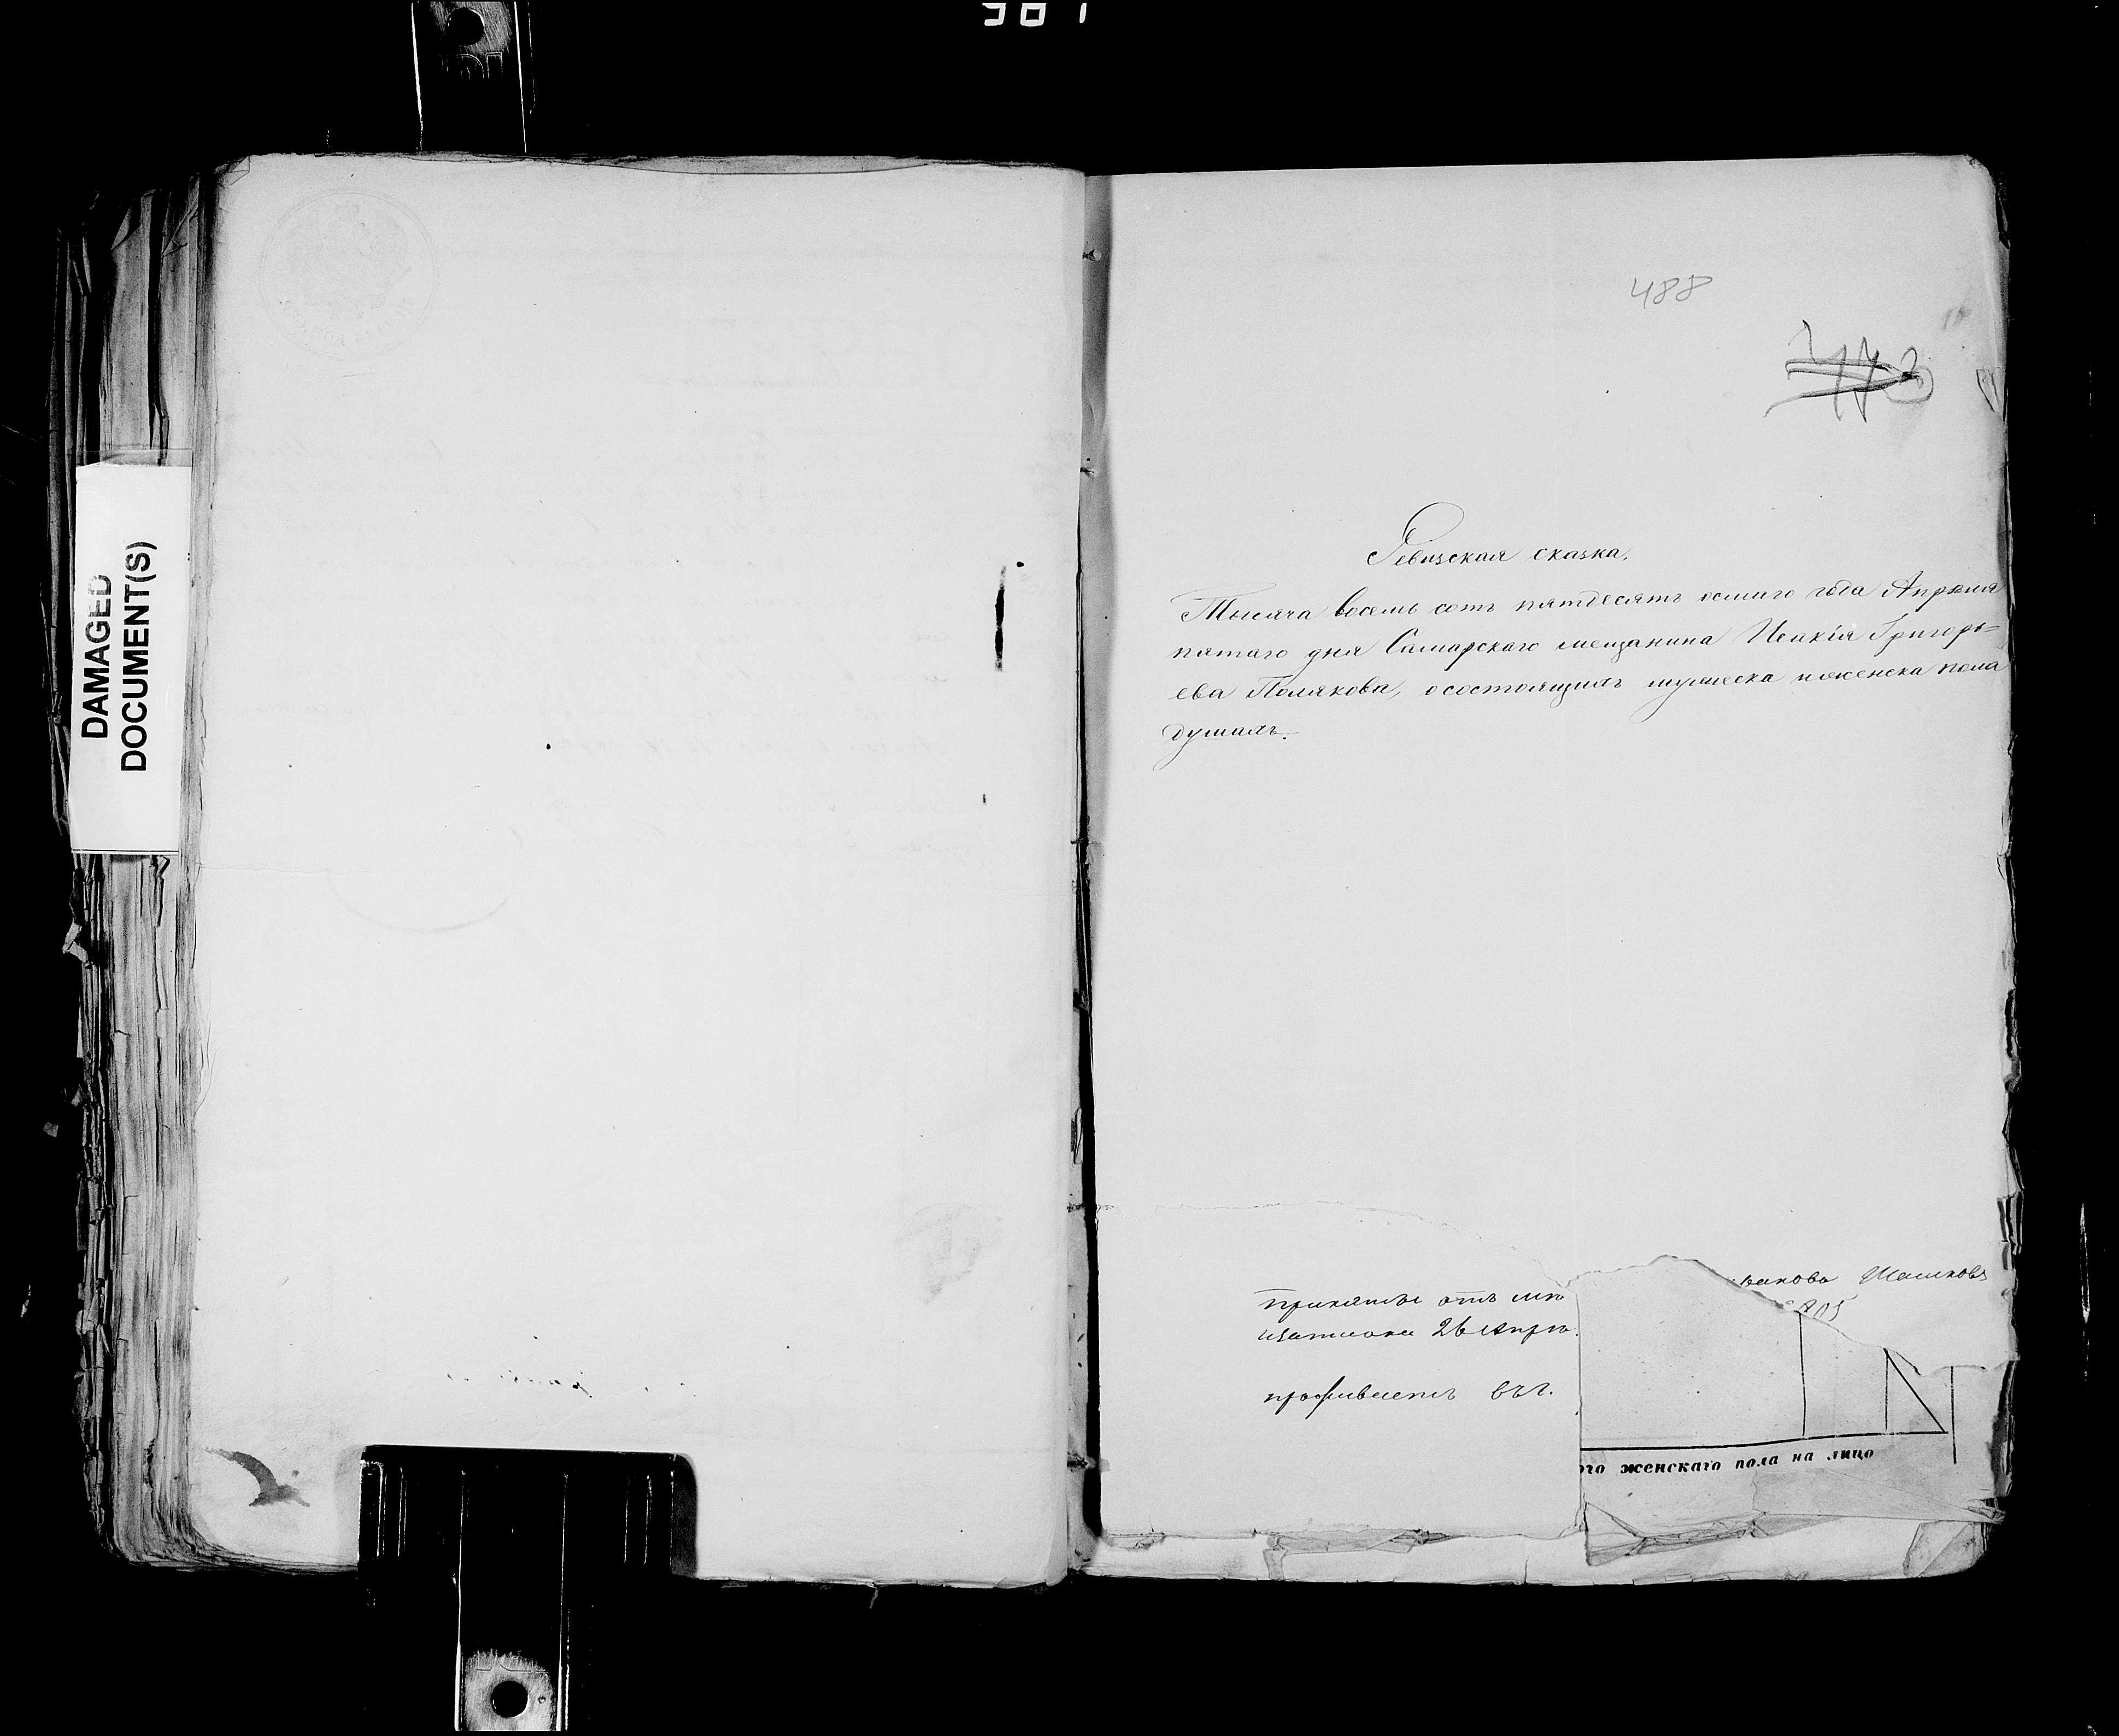 DAMAGED
DOCUMENT(S)
488
Ревизская сказка.
Тысяча восемь сотъ пятдесятъ осмаго года Апреля
пятаго дня Самарскаго мещанина Исакія Григорь=
ева Полякова, о состоящихъ мужеска и женска пола
душахъ.
приняты отъ
26 Апре
проживаетъ въ г.
ого женскаго пола на лицо